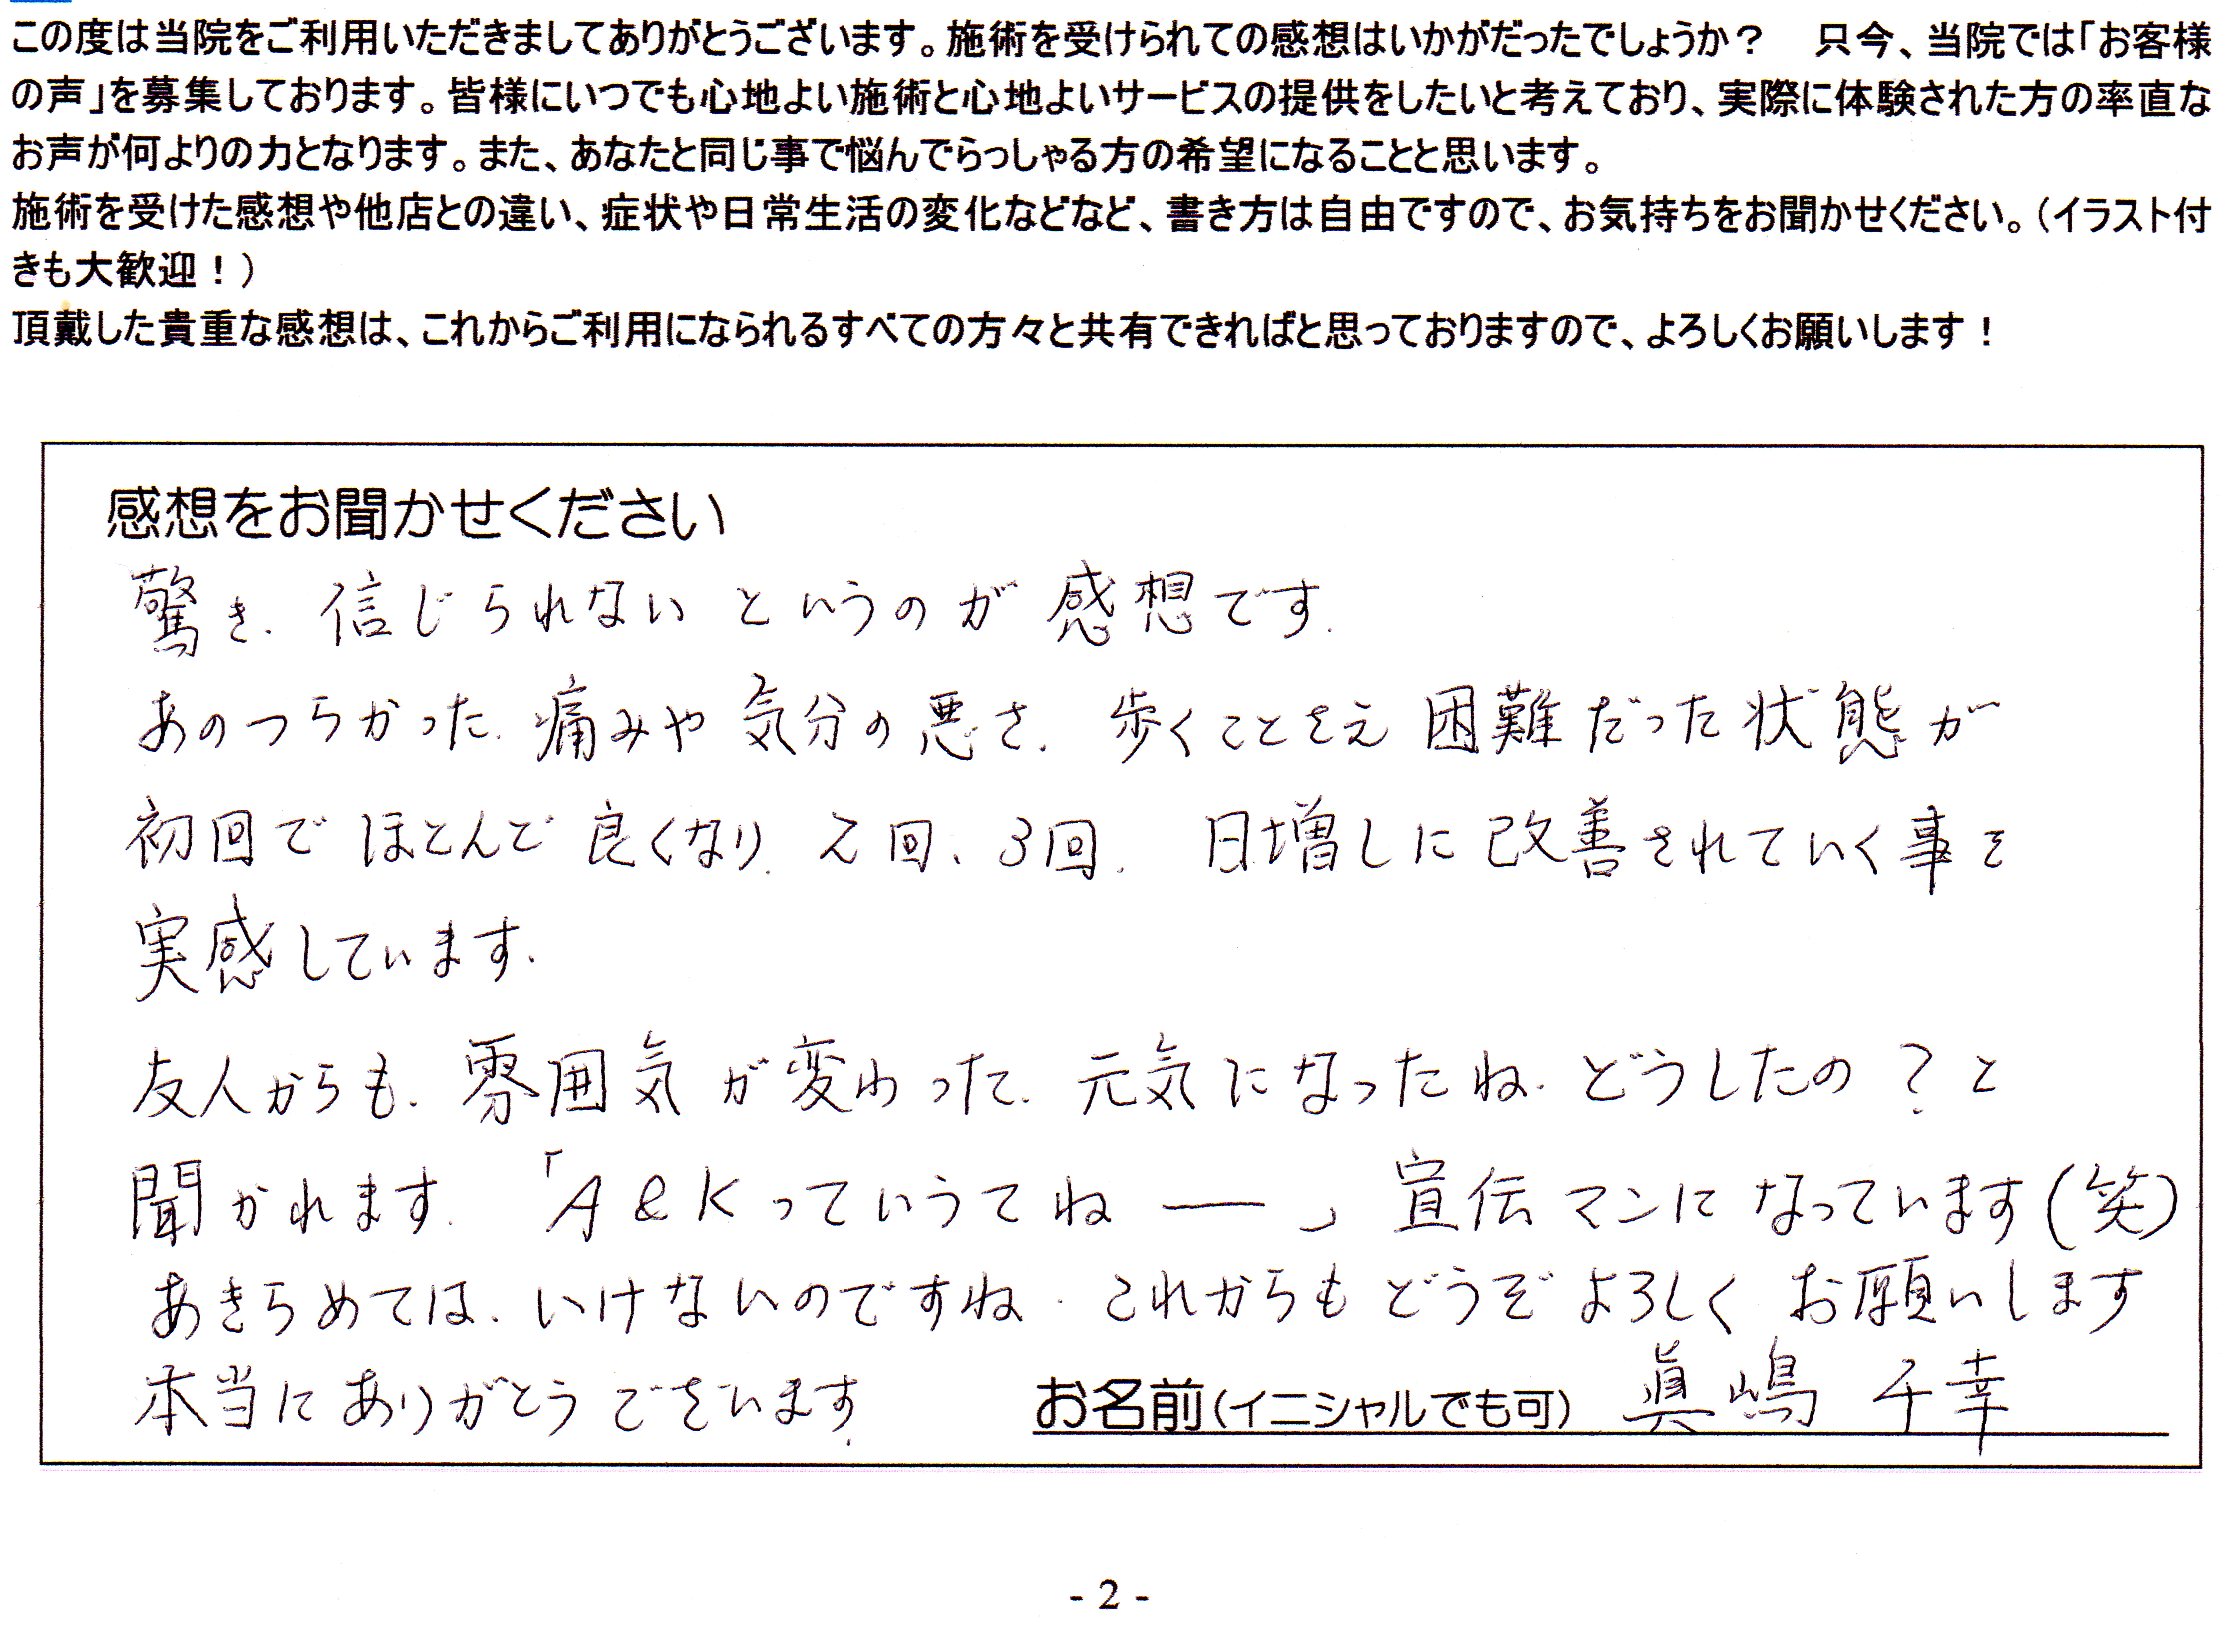 この度は当院をご利用いただきましてありがとうございます。施術を受けられての感想はいかがだったでしょうか？　只今、当院では「お客様
の声」を募集しております。皆様にいつでも心地よい施術と心地よいサービスの提供をしたいと考えており、実際に体験された方の率直な
お声が何よりの力となります。また、あなたと同じ事で悩んでらっしゃる方の希望になることと思います。
施術を受けた感想や他店との違い、症状や日常生活の変化などなど、書き方は自由ですので、お気持ちをお聞かせください。（イラスト付
きも大歓迎！）
頂戴した貴重な感想は、これからご利用になられるすべての方々と共有できればと思っておりますので、よろしくお願いします！
感想をお聞かせください
驚き、信じられないというのが感想です。
あのつらかった、痛みや気分の悪さ、歩くことさえ困難だった状態が
初回でほとんど良くなり、2回、3回、日増しに改善されていく事を
実感しています。
友人からも、雰囲気が変わった、元気になったね、どうしたの？と
聞かれます。「A&Kっていうてねー」宣伝マンになっています（笑）
あきらめては、いけないのですね。これからもどうぞよろしくお願いします
本当にありがとうございます。
お名前（イニシャルでも可）　眞嶋 千幸
- 2 -